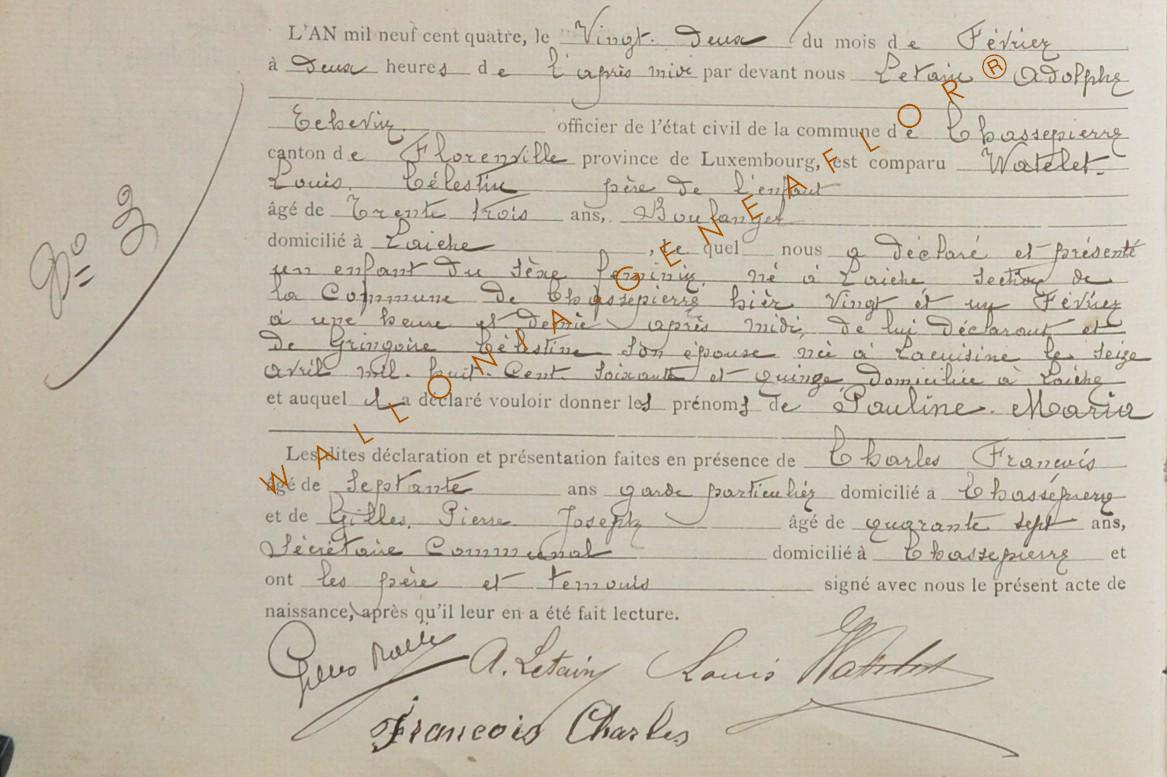 L'AN mil neuf cent quatre, le Vingt-deux du mois de Février
à deux heures de l'après midi par devant nous Letain Adolphe
Echevin officier de l'état civil de la commune de Chassepierre
canton de Florenville province de Luxembourg, est comparu Watelet
Louis Célestin père de l'enfant
âgé de Trente trois ans, Boulanger
domicilié à Laiche, le quel nous a déclaré et présenté
un enfant du sèxe feminin né à Laiche section de
la Commune de Chassepierre hièr vingt et un Février
à une heure et demie après midi, de lui déclarant et
de Gringoire Célestine son épouse née à Lacuisine le seize
avril mil huit Cent soixante et quinze domiciliée à Laiche
et auquel il a déclaré vouloir donner les prénoms de Pauline Maria
N° 3
Les dites déclaration et présentation faites en présence de Charles Francois
âgé de Septante ans garde particulièr domicilié à Chassépierre
et de Gilles Pierre Joseph âgé de quarante sept ans,
Sécrétaire Communal domicilié à Chassepierre et
ont les père et temouis signé avec nous le présent acte de
naissance, après qu'il leur en a été fait lecture.
A. Letain Louis Watelet
Francois Charles
WALLONIA GENEAFLOR®